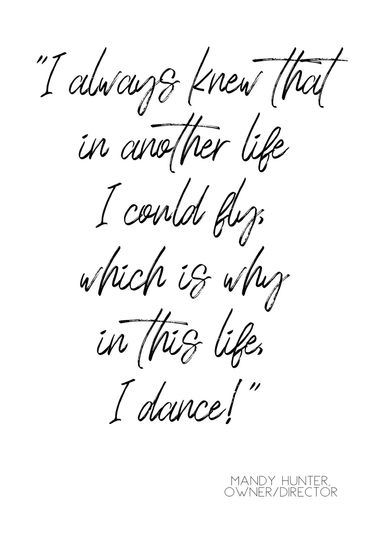 "I always knew that
in another life
I could fly,
which is why
in this life,
I dance!"
MANDY HUNTER,
OWNER/DIRECTOR